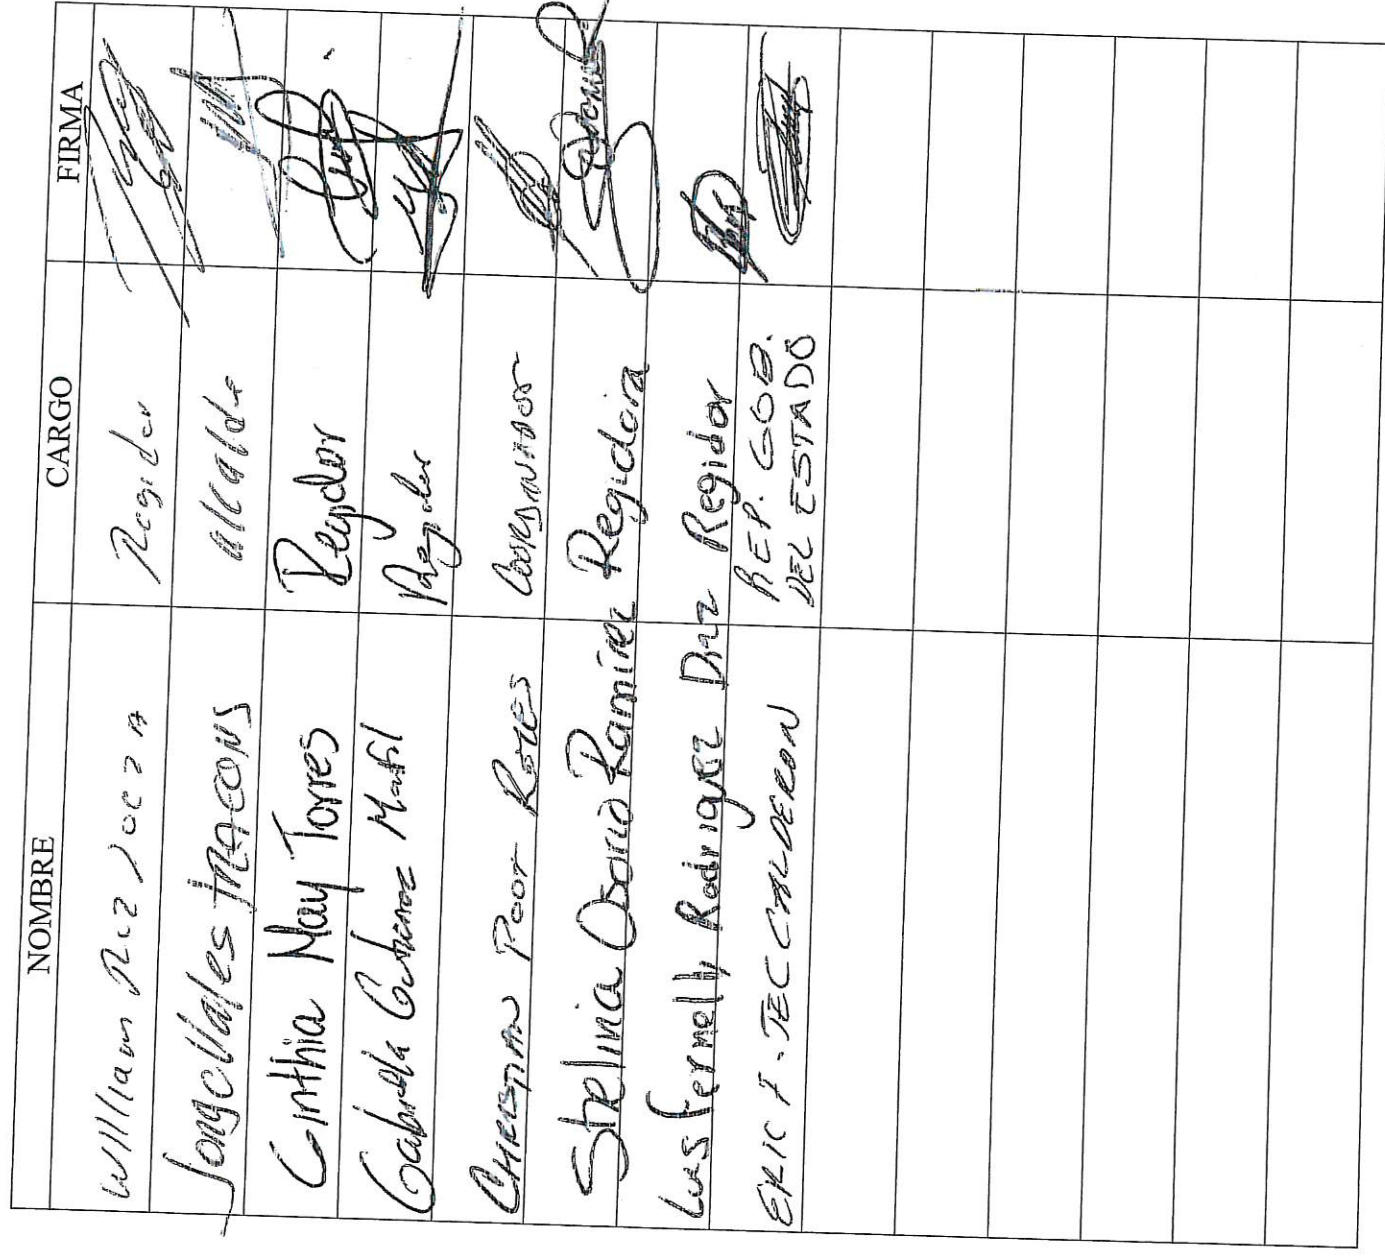 NOMBRE CARGO FIRMA
William Regidor
Jorge Vales alcalde
Cinthia May Torres Regidor
Gabriela Gutierrez Regidor
CHRISTIAN POOT COORDINADOR
Strelinia Osorio Ramírez Regidora
Luis Fernelly Rodriguez Diaz Regidor
ERIC F. TEC CALDERON REP. GOB.
DEL ESTADO